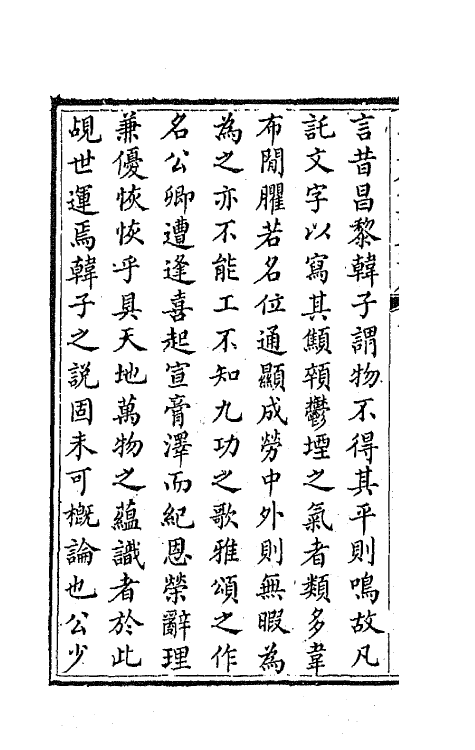 言昔昌黎韓子謂物不得其平則鳴故凡
託文字以寫其顦顇鬱堙之氣者類多韋
布閒臞若名位通顯成勞中外則無暇為
為之亦不能工不知九功之歌雅頌之作
名公卿遭逢喜起宣膏澤而紀恩榮辭理
兼優恢恢乎具天地萬物之蘊識者於此
覘世運焉韓子之說固未可概論也公少